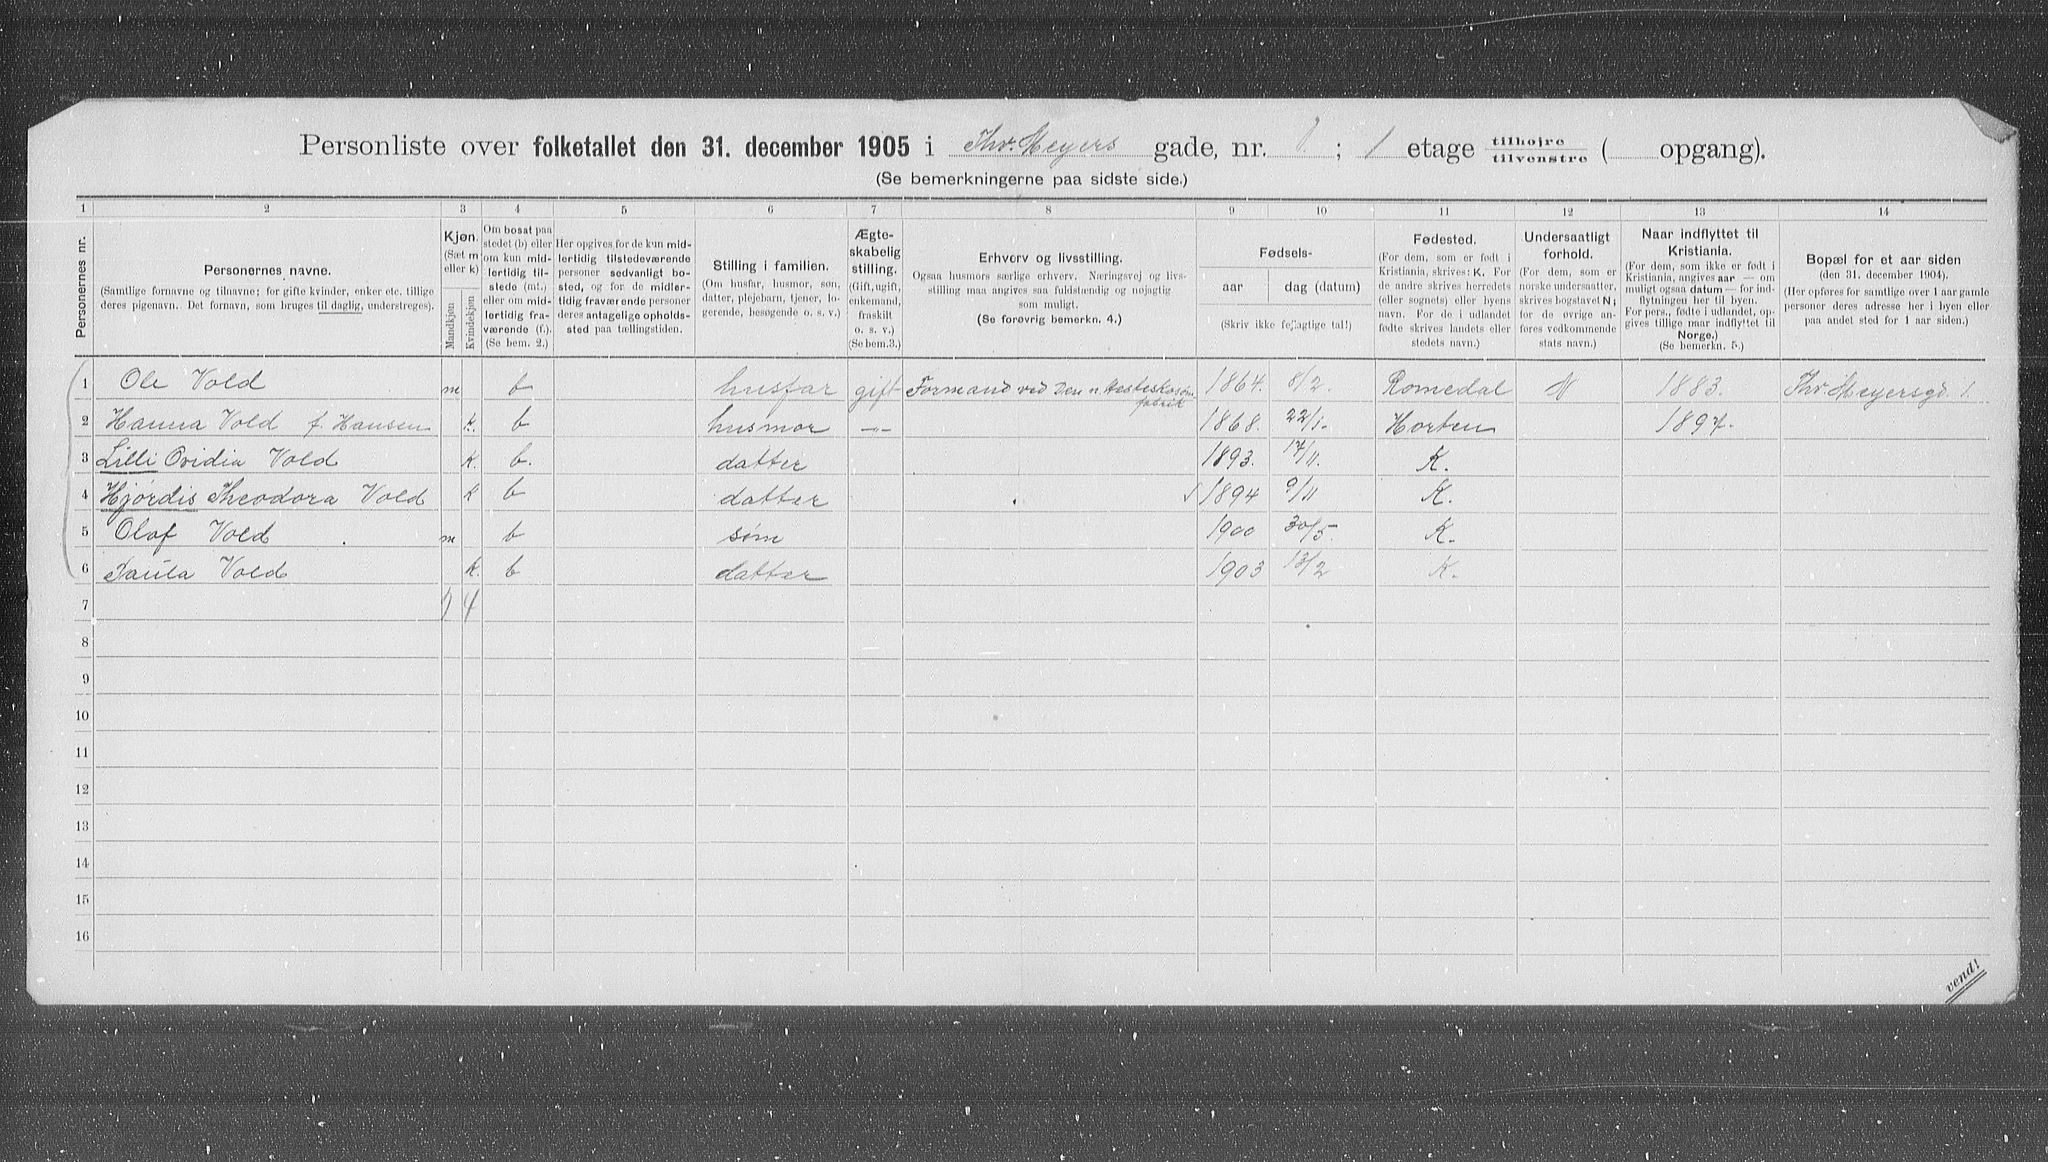 Personliste over folketallet den 31. december 1905 i Thv. Meyers gade, nr. 1. ; 1 etage tilhøjre tilvenstre ( opgang).
(Se bemerkningerne paa sidste side.)
1 2 3 4 5 6 7 8 9 10 11 12 13 14
Personernes nr.
Personernes navne.
(Samtlige fornavne og tilnavne; for gifte kvinder, enker etc. tillige
deres pigenavn. Det fornavn, som bruges til daglig, understreges).
Kjøn.
(Sæt m
eller k)
Mandkjøn
Kvindekjøn
Om bosat paa
stedet (b) eller
om kun mid-
lertidig til-
stede (mt.)
eller om mid-
lertidig fra-
værende (f.).
(Se bem. 2.)
Her opgives for de kun mid-
lertidig tilstedeværende
personer sedvanligt bo-
sted, og for de midler-
tidig fraværende personer
deres antagelige opholds-
sted paa tællingstiden.
Stilling i familien.
(Om husfar, husmor, søn,
datter, plejebarn, tjener, lo-
gerende, besøgende o. s. v.)
Ægte-
skabelig
stilling.
(Gift, ugift,
enkemand,
fraskilt
o. s. v.)
(Se bem.3.)
Erhverv og livsstilling.
Ogsaa husmors særlige erhverv. Næringsvej og livs-
stilling maa angives saa fuldstændig og nøjagtig
som muligt.
(Se forøvrig bemerkn. 4.)
Fødsels-
aar dag (datum)
(Skriv ikke fejlagtige tal!)
Fødested.
(For dem, som er født i
Kristiania, skrives: K. For
de andre skrives herredets
(eller sognets) eller byens
navn. For de i udlandet
fødte skrives landets eller
stedets navn.)
Undersaatligt
forhold.
(For dem, som er
norske undersaatter,
skrives bogstavet N;
for de øvrige an-
føres vedkommende
stats navn.)
Naar indflyttet til
Kristiania.
(For dem, som ikke er født i
Kristiania, angives aar — om
muligt ogsaa datum — for ind-
flytningen her til byen.
For pers., fødte i udlandet, op-
gives tillige naar indflyttet til
Norge.)
(Se bemerkn. 5.)
Bopæl for et aar siden
(den 31. december 1904).
(Her opføres for samtlige over 1 aar gamle
personer deres adresse her i byen eller
paa andet sted for 1 aar siden.)
1 Ole Vold m b husfar gift Formand ved Den n. Hesteskosøm fabrik 1864. 8/2. Romedal N 1883. Thv. Meyersgd. 1.
2 Hanna Vold f. Hansen K. b husmor -"- 1868. 22/1. Horten 1897.
3 Lilli Ovidia Vold K. b. datter 1893. 17/11. K.
4 Hjørdis Theodora Vold K b datter 1894 9/11 K.
5 Olaf Vold m b søm 1900 30/5. K.
6 Paula Vold K. b datter 1903 13/2 K.
7 4
8
9
10
11
12
13
14
15
16
vend!